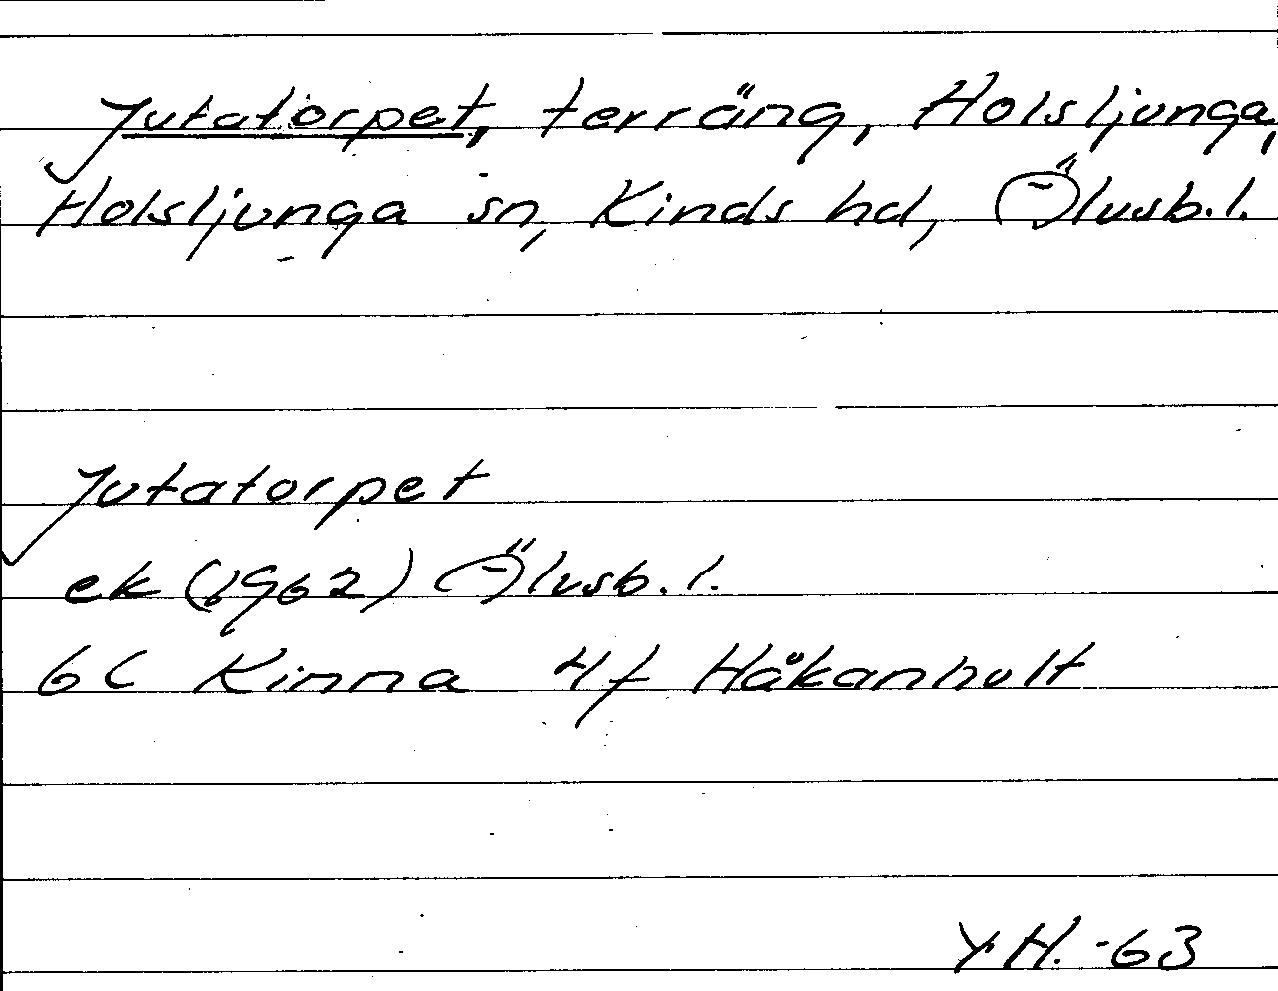 Jutatorpet, terräng, Holsljunga,
Holsljunga sn, Kinds hd, Älvsb. l.
Jutatorpet
ek (1962) Älvsb. l.
6C Kinna 4f Håkanhult
Y H. -63